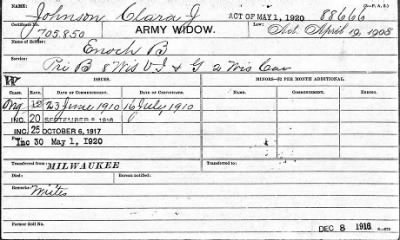 NAME: Johnson Clara J ACT OF MAY 1, 1920 88666 (W.—P. A. S.)
Certificate No. 705.850 ARMY WIDOW. Law: Act April 19, 1908
Name of Soldier: Enoch B
Service: Pri B 8 Wis V I & G 2 Wis Cav
W ISSUES. MINORS—$2 PER MONTH ADDITIONAL.
CLASS. RATE. DATE OF COMMENCEMENT. DATE OF CERTIFICATE. NAME. COMMENCEMENT. ENDING.
Org 12 23 June 1910 16 July, 1910
INC. 20 SEPTEMBER 8 1916
INC. 25 OCTOBER 6, 1917
Inc 30 May 1, 1920
Transferred from MILWAUKEE Transferred to
Died: Bureau notified:
Remarks: Mites
Former Roll No. DEC 8 1916